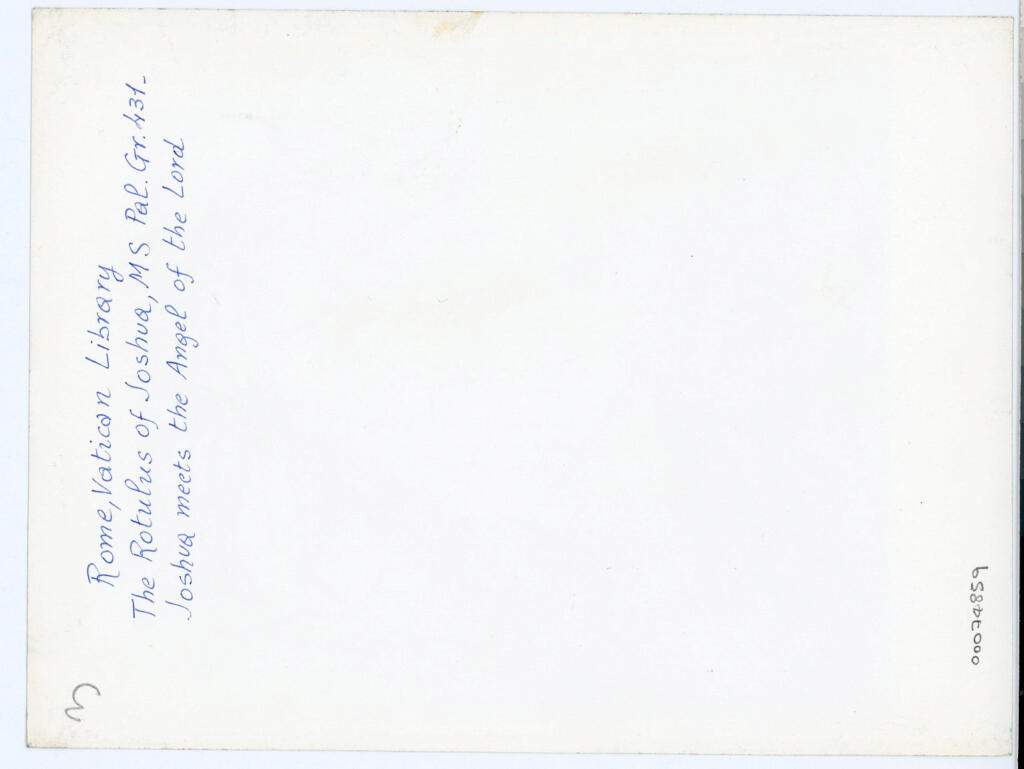 Rome, Vatican Library
The Rotulus of Joshua, MS Pal. Gr. 431-
Joshua meets the Angel of the Lord
3
00074859